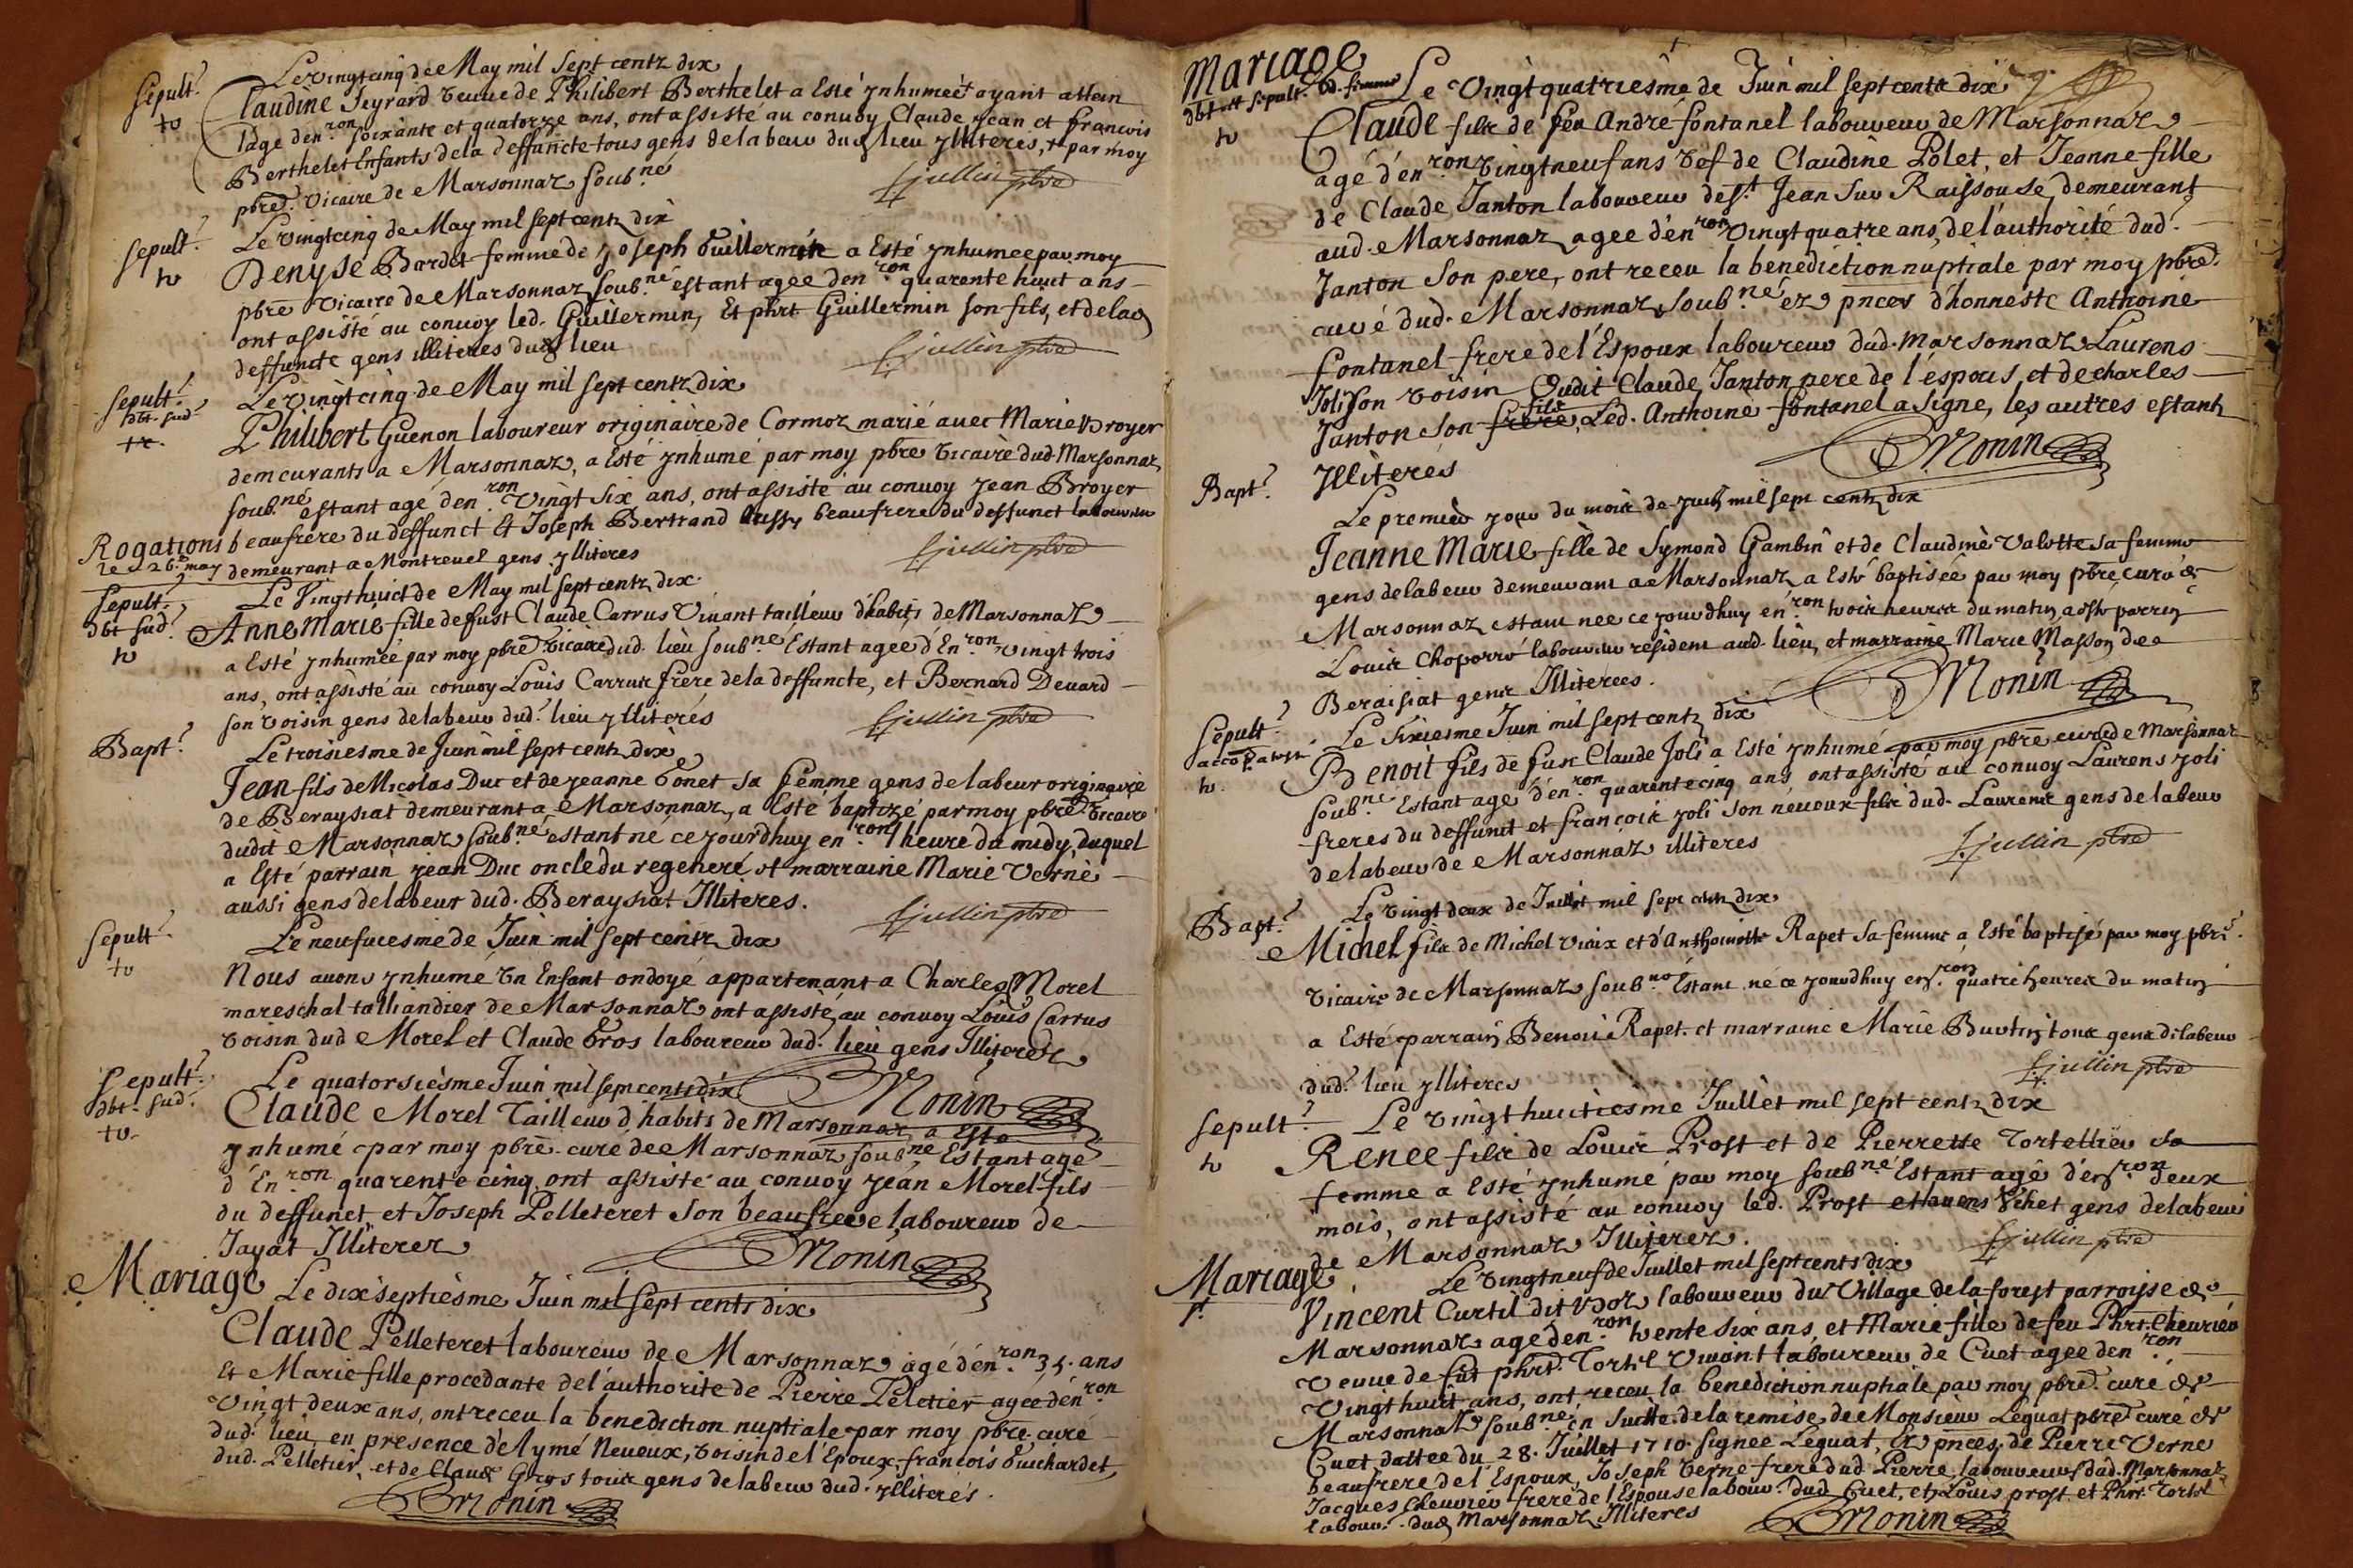 Sepult.
Le vingtcinq de May mil sept centz dix
Claudine Jeyrard veuve de Philibert Berthelet a Esté ynhumée ayant attein
l'age d'en.ron soixante et quatorze ans, ont assisté au convoy Claude, jean et francois
Berthelet Enfants de la deffuncte tous gens de labeur dud. lieu yllitérés, par moy
pbre. vicaire de Marsonnaz soub.né
Ljullin pbre
sepult.
Le vingtcinq de May mil sept centz dix
Denyse Bardet femme de joseph Guillermin a Esté ynhumee par moy
pbre vicaire de Marsonnaz soub.né estant agée d'en.ron quarente huit ans
ont assisté au convoy led. Guillermin, Et phrt Guillermin son fils, et de la
deffuncte gens illiteres dud. lieu
Ljullin pbre
sepult.
dbt. sud.
Le vingt cinq de May mil sept centz dix
Philibert Guenon laboureur originaire de Cormoz marié avec Marie Broyer
demeurants a Marsonnaz, a Esté ynhumé par moy pbre vicaire dud. Marsonnaz,
soub.né estant agé d'en.ron vingt six ans, ont assisté au convoy jean Broyer
beaufrere du deffunct Et Joseph Bertrand aussy beaufrere du deffunct laboureur
Rogations
le 26. may
demeurant a Montrevel gens ylliteres
Ljullin pbre
Sepult.
dbt sud.
Le Vingthuict de May mil sept centz dix.
Anne Marie fille de fust Claude Carrus Vivant tailleur d'habits de Marsonnaz
a Esté ynhumée par moy pbre vicaire dud. lieu soub.né Estant agee d'En.ron vingt trois
ans, ont assisté au convoy Louis Carrus frere de la deffuncte, et Bernard Devard
son voisin gens de labeur dud. lieu yllitérés
Ljullin pbre
Bapt.
Le troisiesme de Juin mil sept centz dix
Jean fils de Nicolas Duc et de jeanne Gonet sa femme gens de labeur originaire
de Beraysiat demeurant a Marsonnaz, a Esté baptizé par moy pbre vicaire
dudit Marsonnaz soub.né estant né ce jourdhuy en.ron l'heure du midy, duquel
a Esté parrain jean Duc oncle du regeneré et marraine Marie Verne
aussi gens de labeur dud. Beraysiat Illiteres.
Ljullin pbre
sepult.
Le neufviesme de Juin mil sept centz dix
Nous avons ynhumé Un Enfant ondoyé appartenant a Charles Morel
mareschal talliandier de Marsonnaz ont assisté au convoy Louis Carrus
voisin dud Morel et Claude Gros laboureur dud. lieu gens Illiterez
Monin
Sepult.
dbt. sud.
Le quatorsiesme Juin mil sept cents dix
Claude Morel Tailleur d'habits de Marsonnaz a Esté
ynhumé par moy pbre. curé de Marsonnaz soub.né Estant agé
d'En.ron quarente cinq, ont assisté au convoy jean Morel fils
du deffunct et Joseph Pelleteret son beaufrere laboureur de
Jayat Illiterez
Monin
Mariage
Le dix septiesme Juin mil sept cents dix
Claude Pelleteret laboureur de Marsonnaz agé d'én.ron 35. ans
Et Marie fille procedante de l'authorité de Pierre Peletier agee d'én.ron
Vingt deux ans, ont receu la benediction nuptiale par moy pbre. curé
dud. lieu en presence d'Elymé Neveux, voisin de l'Epoux, francois Guichardet,
dud. Pelletier, et de Claude Gros touts gens de labeur dud. yllitérés.
Monin
Mariage
Le Vingt quatriesme de Juin mil sept cents dix
Claude fils de feu André fontanel laboureur de Marsonnaz
agé d'én.ron Vingtneuf ans vef de Claudine Polet, et Jeanne fille
de Claude Janton laboureur de s.t Jean sur Raissouse, demeurant
aud. Marsonnaz, agee d'én.ron vingt quatre ans, de l'authorité dud.
Janton son pere, ont receu la benediction nuptiale par moy pbre.
curé dud. Marsonnaz soub.né ez pnces d'honneste Anthoine
fontanel frere de l'Espoux laboureur dud. Marsonnaz Laurens
Joli son voisin Dudit Claude Janton pere de l'espouse, et de charles
Janton son frere fils, Led. Anthoine fontanel a signé, les autres estant
yllitéres
Monin
Bapt.
Le premier jour du mois de juin mil sept centz dix
Jeanne Marie fille de Symond Gambin et de Claudine Valotte sa femme
gens de labeur demeurant a Marsonnaz a Esté baptisée par moy pbre curé de
Marsonnaz estant née ce jourdhuy en.ron trois heures du matin a esté parrin
Louis Choporré laboureur résident aud. lieu, et marraine Marie Masson de
Beraisiat gens Illiterees.
Monin
Sepult.
Le sixiesme Juin mil sept centz dix
Benoit fils de fust Claude Joli a Esté ynhumé par moy pbre curé de Marsonnaz
soub.né Estant agé d'én.ron quarentecinq ans ont assisté au convoy Laurens joli
freres du deffunct et francois joli son néveux fils dud. Laurens gens de labeur
de labeur de Marsonnaz illitéres
Ljullin pbre
Bapt.
Le vingt deux de Juillet mil sept centz dix
Michel fils de Michel Vioix et d'Anthoinette Rapet sa femme a Esté baptisé par moy pbre.
vicaire de Marsonnaz soub.né Estant né ce jourdhuy en.ron quatre heures du matin
a Esté parrain Benoit Rapet. et marraine Marie Buvtin tous gens de labeur
dud. lieu ylliteres
Ljullin pbre
sepult.
Le vingt huitiesme Juillet mil sept centz dix
Renee fils de Louis Prost et de Pierrette Tortellier sa
femme a Esté ynhumé par moy soub.né Estant agé d'en.ron deux
mois, ont assisté au convoy led. Prost et gens de labeur
de Marsonnaz Illiterez.
Ljullin pbre
Mariage
Le vingtneuf de Juillet mil sept cents dix
Vincent Curtil dit Boz laboureur du Village de la forest parroisse de
Marsonnaz agé d'en.ron trente six ans, et Marie fille de feu Phrt. Chevrier
Veuve de fut phrt. Tortil Vivant laboureur de Cuet agee d'en.ron
Vingt huit ans, ont receu la benediction nuptiale par moy pbre. curé de
Marsonnaz soub.né en suitte de la remise de Monsieur Leguat pbre curé de
Cuet dattée du 28. Juillet 1710. signee Leguat, Ez pnces, de Pierre Verne
beaufrere de l'Espoux, Joseph Verne frere dud Pierre, laboureurs dud. Marsonnaz
Jacques Chevrier frere de l'Espouse labour. dud Cuet, et Louis prost et Phrt. Tortil
labour. dud. Marsonnaz Illiteres
Monin